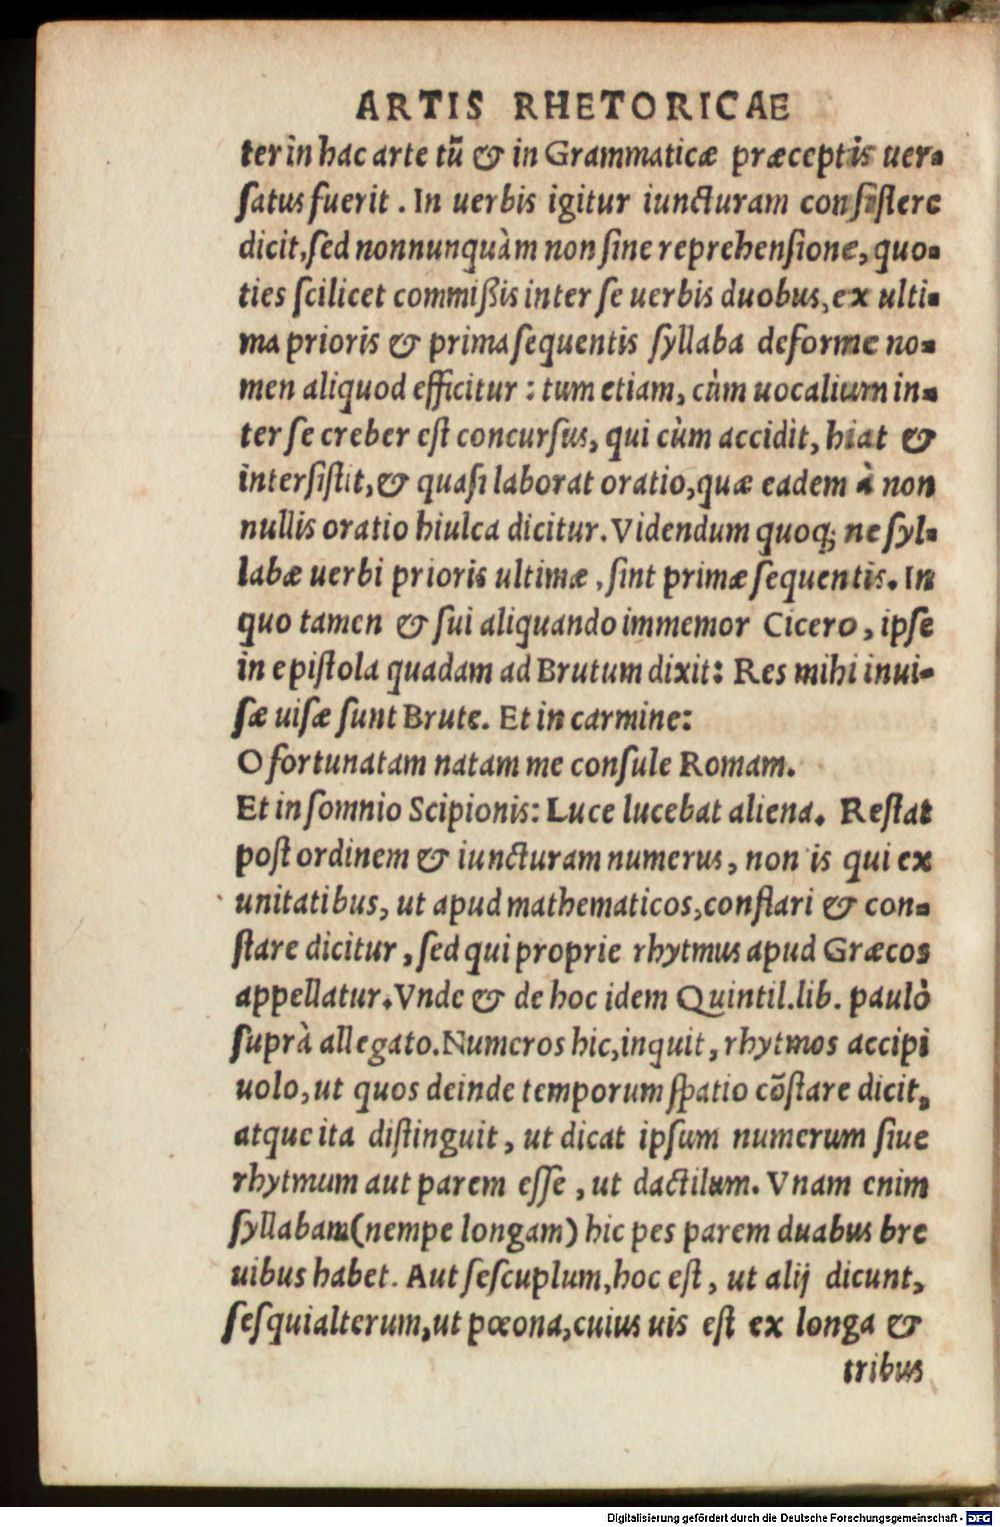 ARTIS RHETORICAE
ter in hac arte tū & in Grammaticæ præceptis uer-
ſatus fuerit. In uerbis igitur iuncturam conſiſtere
dicit, ſed nonnunquàm non ſine reprehenſione, quo-
ties ſcilicet commiſſis inter ſe uerbis duobus, ex ulti-
ma prioris & prima ſequentis ſyllaba deforme no-
men aliquod efficitur: tum etiam, cùm uocalium in-
ter ſe creber eſt concurſus, qui cùm accidit, hiat &
interſiſtit, & quaſi laborat oratio, quæ eadem à non
nullis oratio hiulca dicitur. Videndum quoq; ne ſyl-
labæ uerbi prioris ultimæ, ſint primæ ſequentis. In
quo tamen & ſui aliquando immemor Cicero, ipſe
in epiſtola quadam ad Brutum dixit: Res mihi inui-
ſæ uiſæ ſunt Brute. Et in carmine:
O fortunatam natam me conſule Romam.
Et in ſomnio Scipionis: Luce lucebat aliena. Reſtat
poſt ordinem & iuncturam numerus, non is qui ex
unitatibus, ut apud mathematicos, conflari & con-
ſtare dicitur, ſed qui proprie rhytmus apud Græcos
appellatur. Vnde & de hoc idem Quintil. lib. paulò
ſuprà allegato. Numeros hic, inquit, rhytmos accipi
uolo, ut quos deinde temporum ſpatio cōſtare dicit,
atque ita diſtinguit, ut dicat ipſum numerum ſiue
rhytmum aut parem eſſe, ut dactilum. Vnam enim
ſyllabam (nempe longam) hic pes parem duabus bre
uibus habet. Aut ſeſcuplum, hoc eſt, ut alij dicunt,
ſeſquialterum, ut pœona, cuius uis eſt ex longa &
tribus
Digitalisierung gefördert durch die Deutsche Forschungsgemeinschaft - DFG